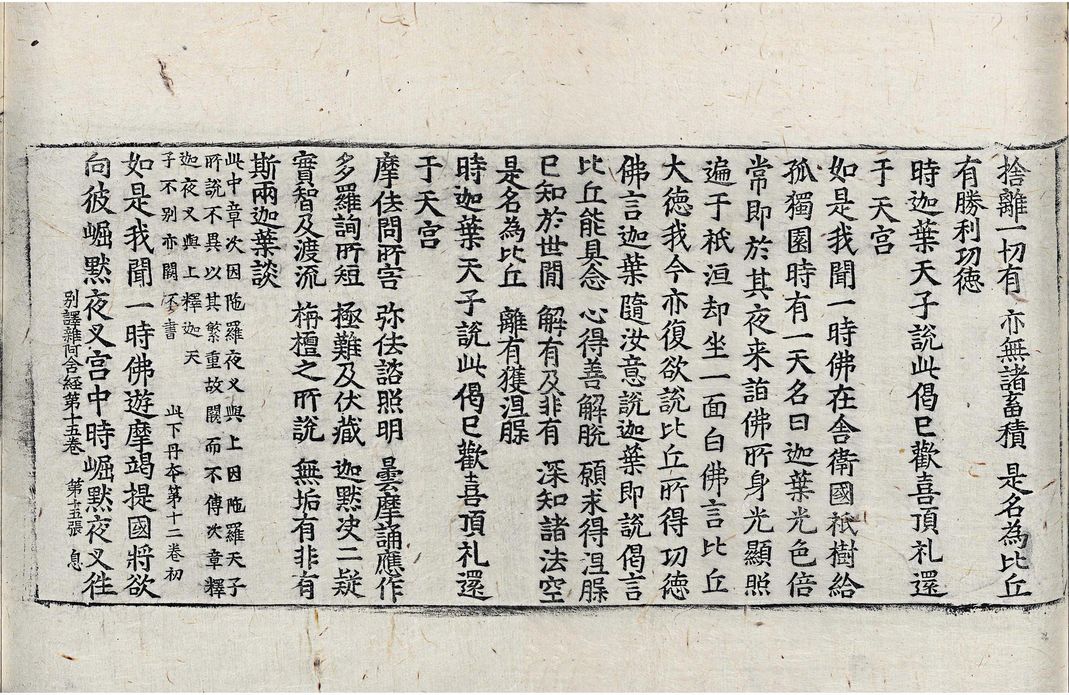 捨離一切有 亦無諸畜積 是名為比丘
有勝利功徳
時迦葉天子說此偈已歡喜頂礼還
于天宫
如是我聞一時佛在舍衛國祇樹給
孤獨園時有一天名曰迦葉光色倍
常即於其夜来詣佛所身光顯照
遍于祇洹却坐一面白佛言比丘
大徳我今亦復欲說比丘所得功徳
佛言迦葉隨汝意說迦葉即說偈言
比丘能具念 心得善解脫 願求得涅槃
已知於世間 解有及非有 深知諸法空
是名為比丘 離有獲涅槃
時迦葉天子說此偈已歡喜頂礼還
于天宫
摩佉問所害 弥佉諮照明 曇摩誦應作
多羅詢所短 極難及伏藏 迦黙决二疑
實智及渡流 栴檀之所說 無垢有非有
斯兩迦葉談
此中章次因陁羅夜叉與上因陁羅天子
所說不異以其繁重故闕而不傳次章釋
迦夜叉與上釋迦天
子不别亦闕不書 此下丹本第十二卷初
如是我聞一時佛遊摩竭提國將欲
别譯雜阿含経第十五卷 第十五張 息
向彼崛黙夜叉宫中時崛黙夜叉往